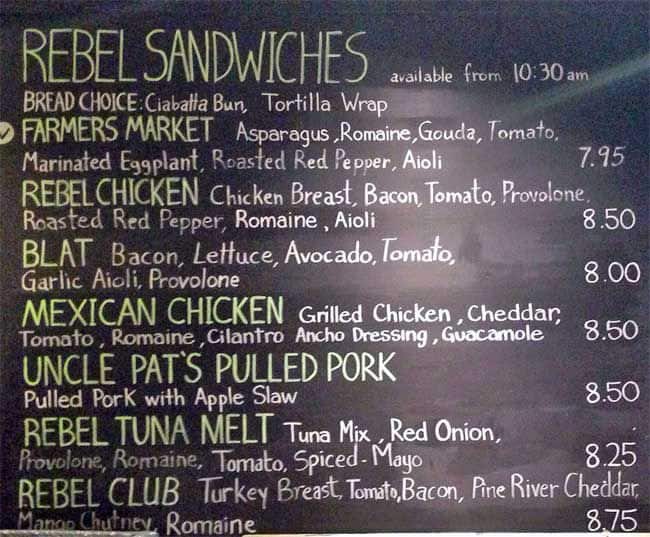 REBEL SANDWICHES available from 10:30am
BREAD CHOICE: Ciabatta Bun, Tortilla Wrap
FARMERS MARKET Asparagus, Romaine, Gouda, Tomato,
Marinated Eggplant, Roasted Red Pepper, Aioli 7.95
REBEL CHICKEN Chicken Breast, Bacon, Tomato, Provolone,
Roasted Red Pepper, Romaine, Aioli 8.50
BLAT Bacon, Lettuce, Avocado, Tomato,
Garlic Aioli, Provolone 8.00
MEXICAN CHICKEN Grilled Chicken, Cheddar,
Tomato, Romaine, Cilantro Ancho Dressing, Guacamole 8.50
UNCLE PAT'S PULLED PORK
Pulled Pork with Apple Slaw 8.50
REBEL TUNA MELT Tuna Mix, Red Onion,
Provolone, Romaine, Tomato, Spiced-Mayo 8.25
REBEL CLUB Turkey Breast, Tomato, Bacon, Pine River Cheddar,
Mango Chutney, Romaine 8.75